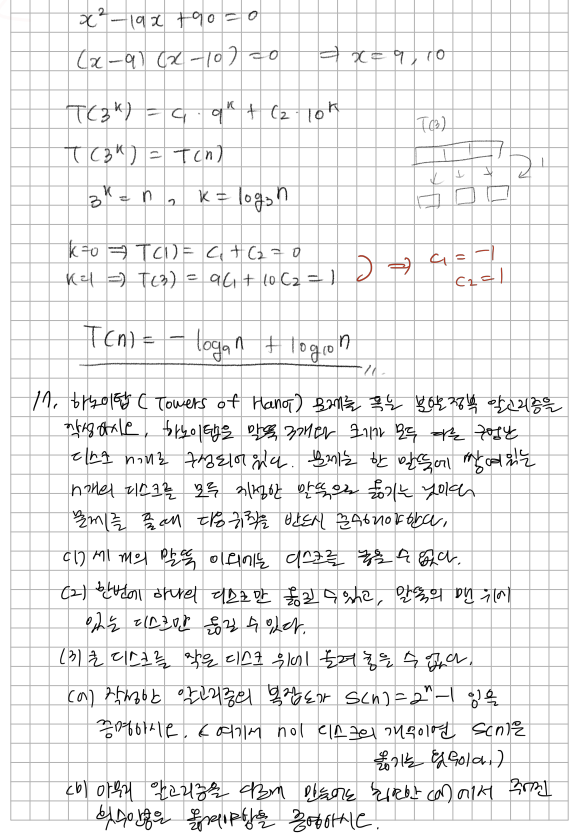 x² - 19x + 90 = 0
(x-9)(x-10) = 0 ⇒ x = 9, 10
T(3^k) = c₁ · 9^k + c₂ · 10^k
T(3)
T(3^k) = T(n)
1
3^k = n, k = log₃n
k=0 ⇒ T(1) = c₁ + c₂ = 0
k=1 ⇒ T(3) = 9c₁ + 10c₂ = 1
⇒ c₁ = -1
c₂ = 1
T(n) = - log₉n + log₁₀n
17. 하노이탑 (Towers of Hanoi) 문제를 푸는 분할정복 알고리즘을
작성하시오. 하노이탑은 말뚝 3개와 크기가 모두 다른 구멍난
디스크 n개로 구성되어있다. 문제는 한 말뚝에 쌓여있는
n개의 디스크를 모두 지정한 말뚝으로 옮기는 것이다.
문제를 풀때 다음규칙을 반드시 준수해야한다.
(1) 세 개의 말뚝 이외에는 디스크를 놓을 수 없다.
(2) 한번에 하나의 디스크만 옮길 수 있고, 말뚝의 맨 위에
있는 디스크만 옮길 수 있다.
(3) 큰 디스크를 작은 디스크 위에 올려 놓을 수 없다.
(a) 작성한 알고리즘의 복잡도가 S(n)=2ⁿ-1 임을
증명하시오. (여기서 n이 디스크의 개수이면 S(n)은
옮기는 횟수이다.)
(b) 아무리 알고리즘을 다르게 만들어도 (a)에서 주어진
횟수만큼은 옮겨야함을 증명하시오.